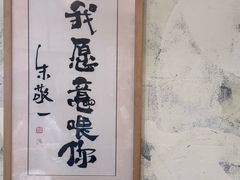 我愿意喂你
朱敬一